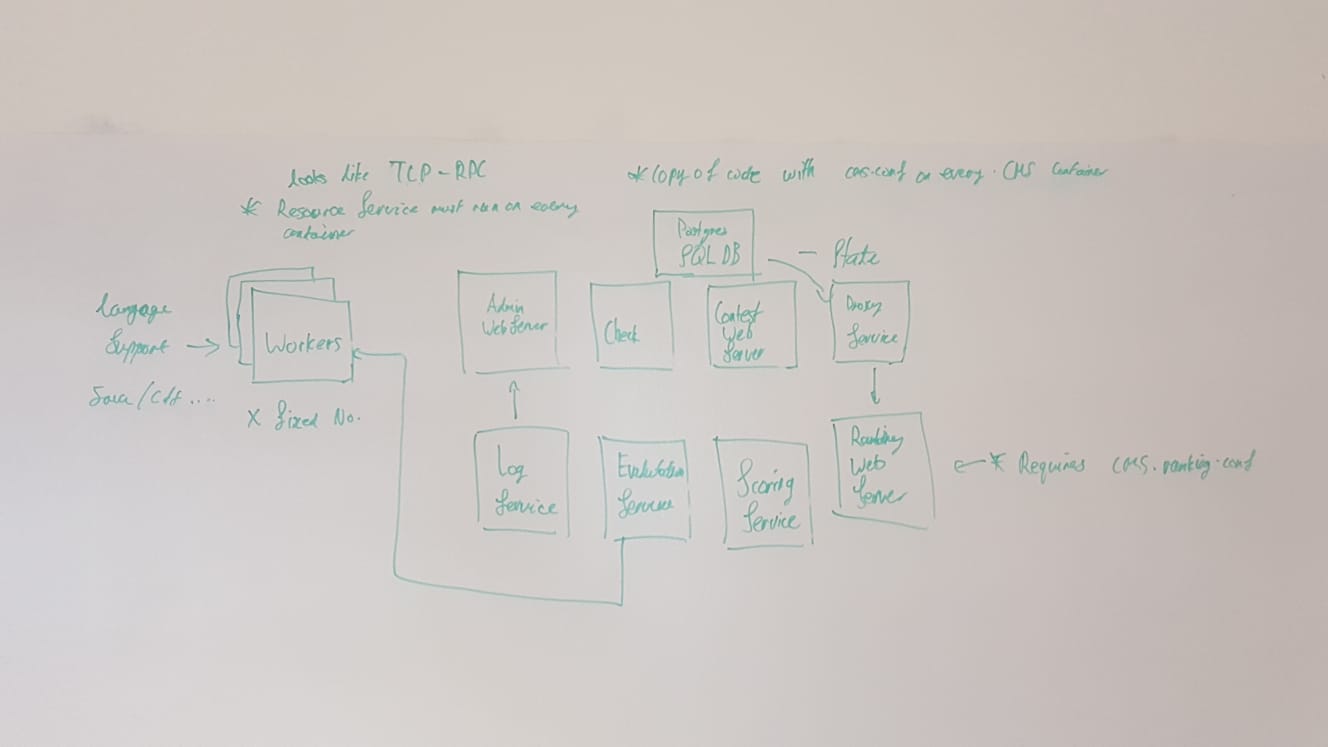 looks like TCP-RPC
* Resource Service must run on every
container
* Copy of code with cms.conf on every CMS Container
Postgres
SQL DB
- State
Language
Support
Java/C++ ....
Workers
X fixed No.
Admin
Web Server
Check
Contest
Web
Server
Proxy
Service
Log
Service
Evaluation
Service
Scoring
Service
Ranking
Web
Server
* Requires CMS.ranking.conf